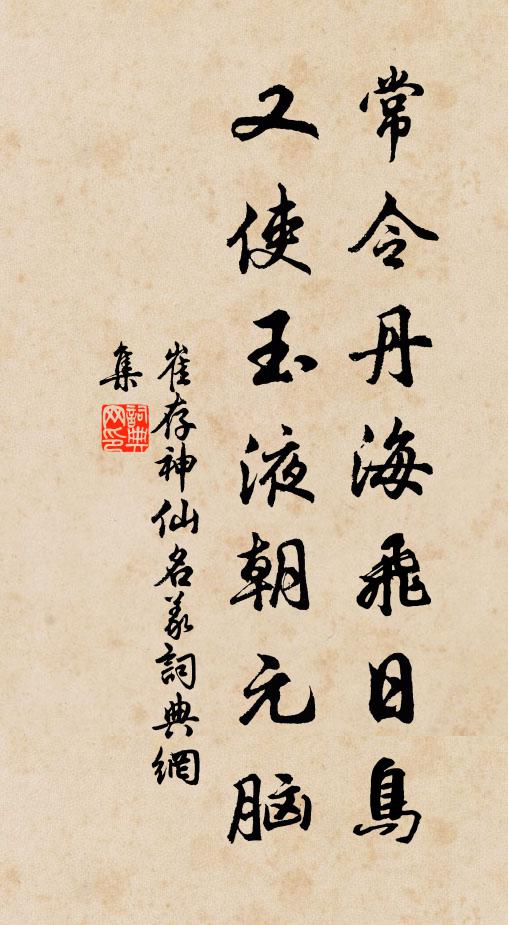 常令丹海飛日烏
又使玉液朝元脑
崔存神仙名義詞典網
集
詞典
网印